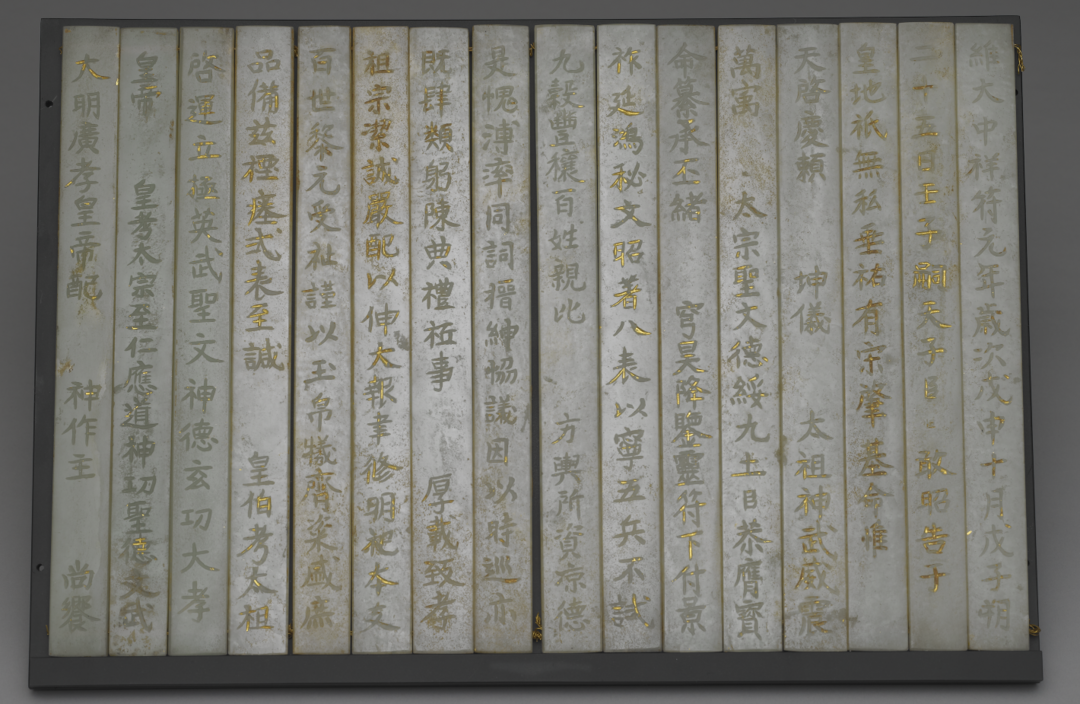 維大中祥符元年歲次戊申十月戊子朔
二十五日壬子嗣天子臣敢昭告于
皇地祇無私垂祐有宋肇基命惟
天啓慶賴 坤儀 太祖神武威震
萬寓 太宗聖文德綏九土臣恭膺寶
命纂承丕緒 穹昊降鑒靈符下付景
祚延鴻秘文昭著八表以寧五兵不試
九穀豐穰百姓親比 方輿所資涼德
是愧溥率同詞搢紳協議因以時巡亦
既肆類躬陳典禮祗事 厚載致孝
祖宗潔誠嚴配以伸大報聿修明祀本支
百世黎元受祉謹以玉帛犧齊粢盛庶
品備玆禋瘞式表至誠 皇伯考太祖
啓運立極英武聖文神德玄功大孝
皇帝 皇考太宗至仁應道神功聖德文武
大明廣孝皇帝配 神作主 尚饗